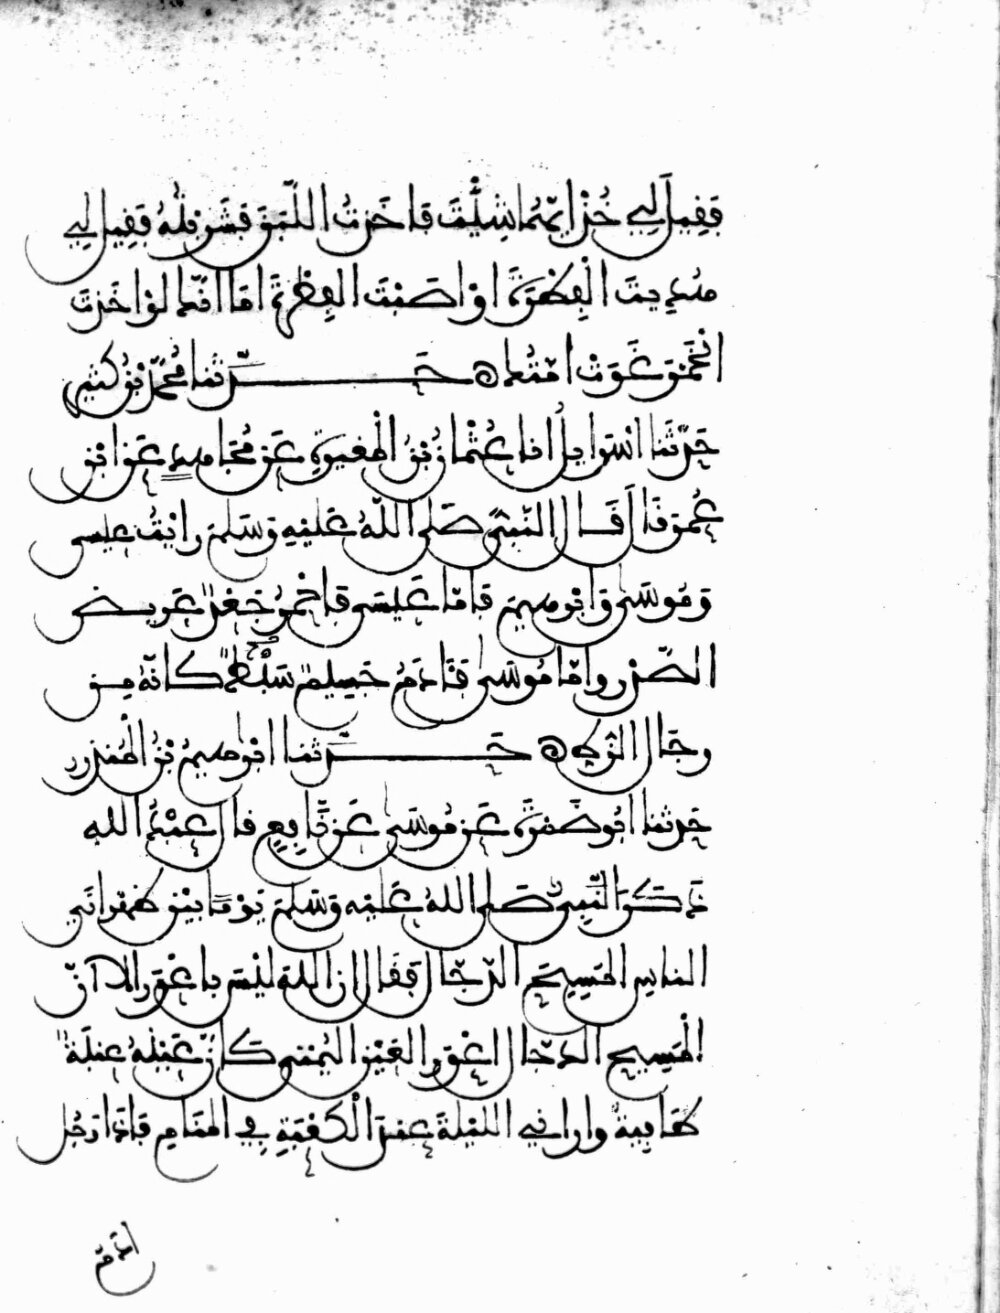 فَقِيلَ لِي خُذْ ايَّهُمَا شِئْتَ فَاخَذتُ اللَّبَنَ فَشَرِبْتُهُ فَقِيلَ لِي
هُدِيتَ الْفِطْرَةَ اوْ اصَبْتَ الفِطْرَةَ امَا انَّكَ لوْ اخَذتَ
الْخَمْرَ غَوَتْ امَّتُكَ ۞ حَدَّثنا مُحَمَّدُ بْنُ كَثِيرٍ
حَدَّثَنَا اسْرَايِلُ انا عُثْمَانُ بْنُ الْمُغِيرَةِ عَن مُجَاهِدٍ عَنِ ابْنِ
عُمَرَ قَالَ قَالَ النَّبِيُّ صَلى اللَّهُ عَلَيْهِ وَسَلمَ رَايْتُ عِيسى
وَمُوسَى وَابْرهِيمَ فَامَّا عِيسَى فَاحْمَرُ جَعْدٌ عَرِيضُ
الصَّدْرِ وامَّا مُوسَى فَآدَمُ جَسِيمٌ سَبْطٌ كَانَّهُ مِن
رجَالِ الزُّطِّ ۞ حَدَّثنا ابْرَاهِيمُ بْنُ الْمُنْذِرِ
حَدثنا ابُو ضَمْرَةَ عَن مُوسَى عَن نَافِعٍ قال عَبْدُ اللهِ
ذَكَرَ النَّبِيُّ صَلى اللهُ عَلَيْهِ وَسَلمَ يَوْمًا بَيْنَ ظَهْرَانَيِ
الناسِ الْمَسِيحَ الدَّجَّالَ فَقَالَ ان اللهَ ليْسَ بِاعْوَرَ الا انَّ
الْمَسِيحَ الدَّجَّالَ اعْوَرُ العَيْنِ اليُمْنَى كَانَّ عَيْنَهُ عِنَبَةٌ
طَافِيَةٌ وارَانِي اللَّيْلَةَ عِنْدَ الْكَعْبَةِ فِي الْمَنَامِ فَاذَا رَجُلٌ
آدَمُ